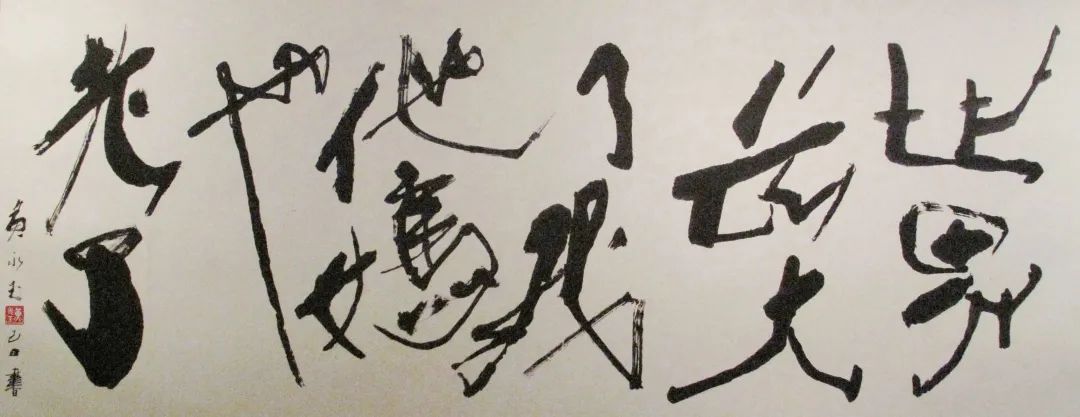 世界
长大
了我
他媽
也
老了
黄永玉